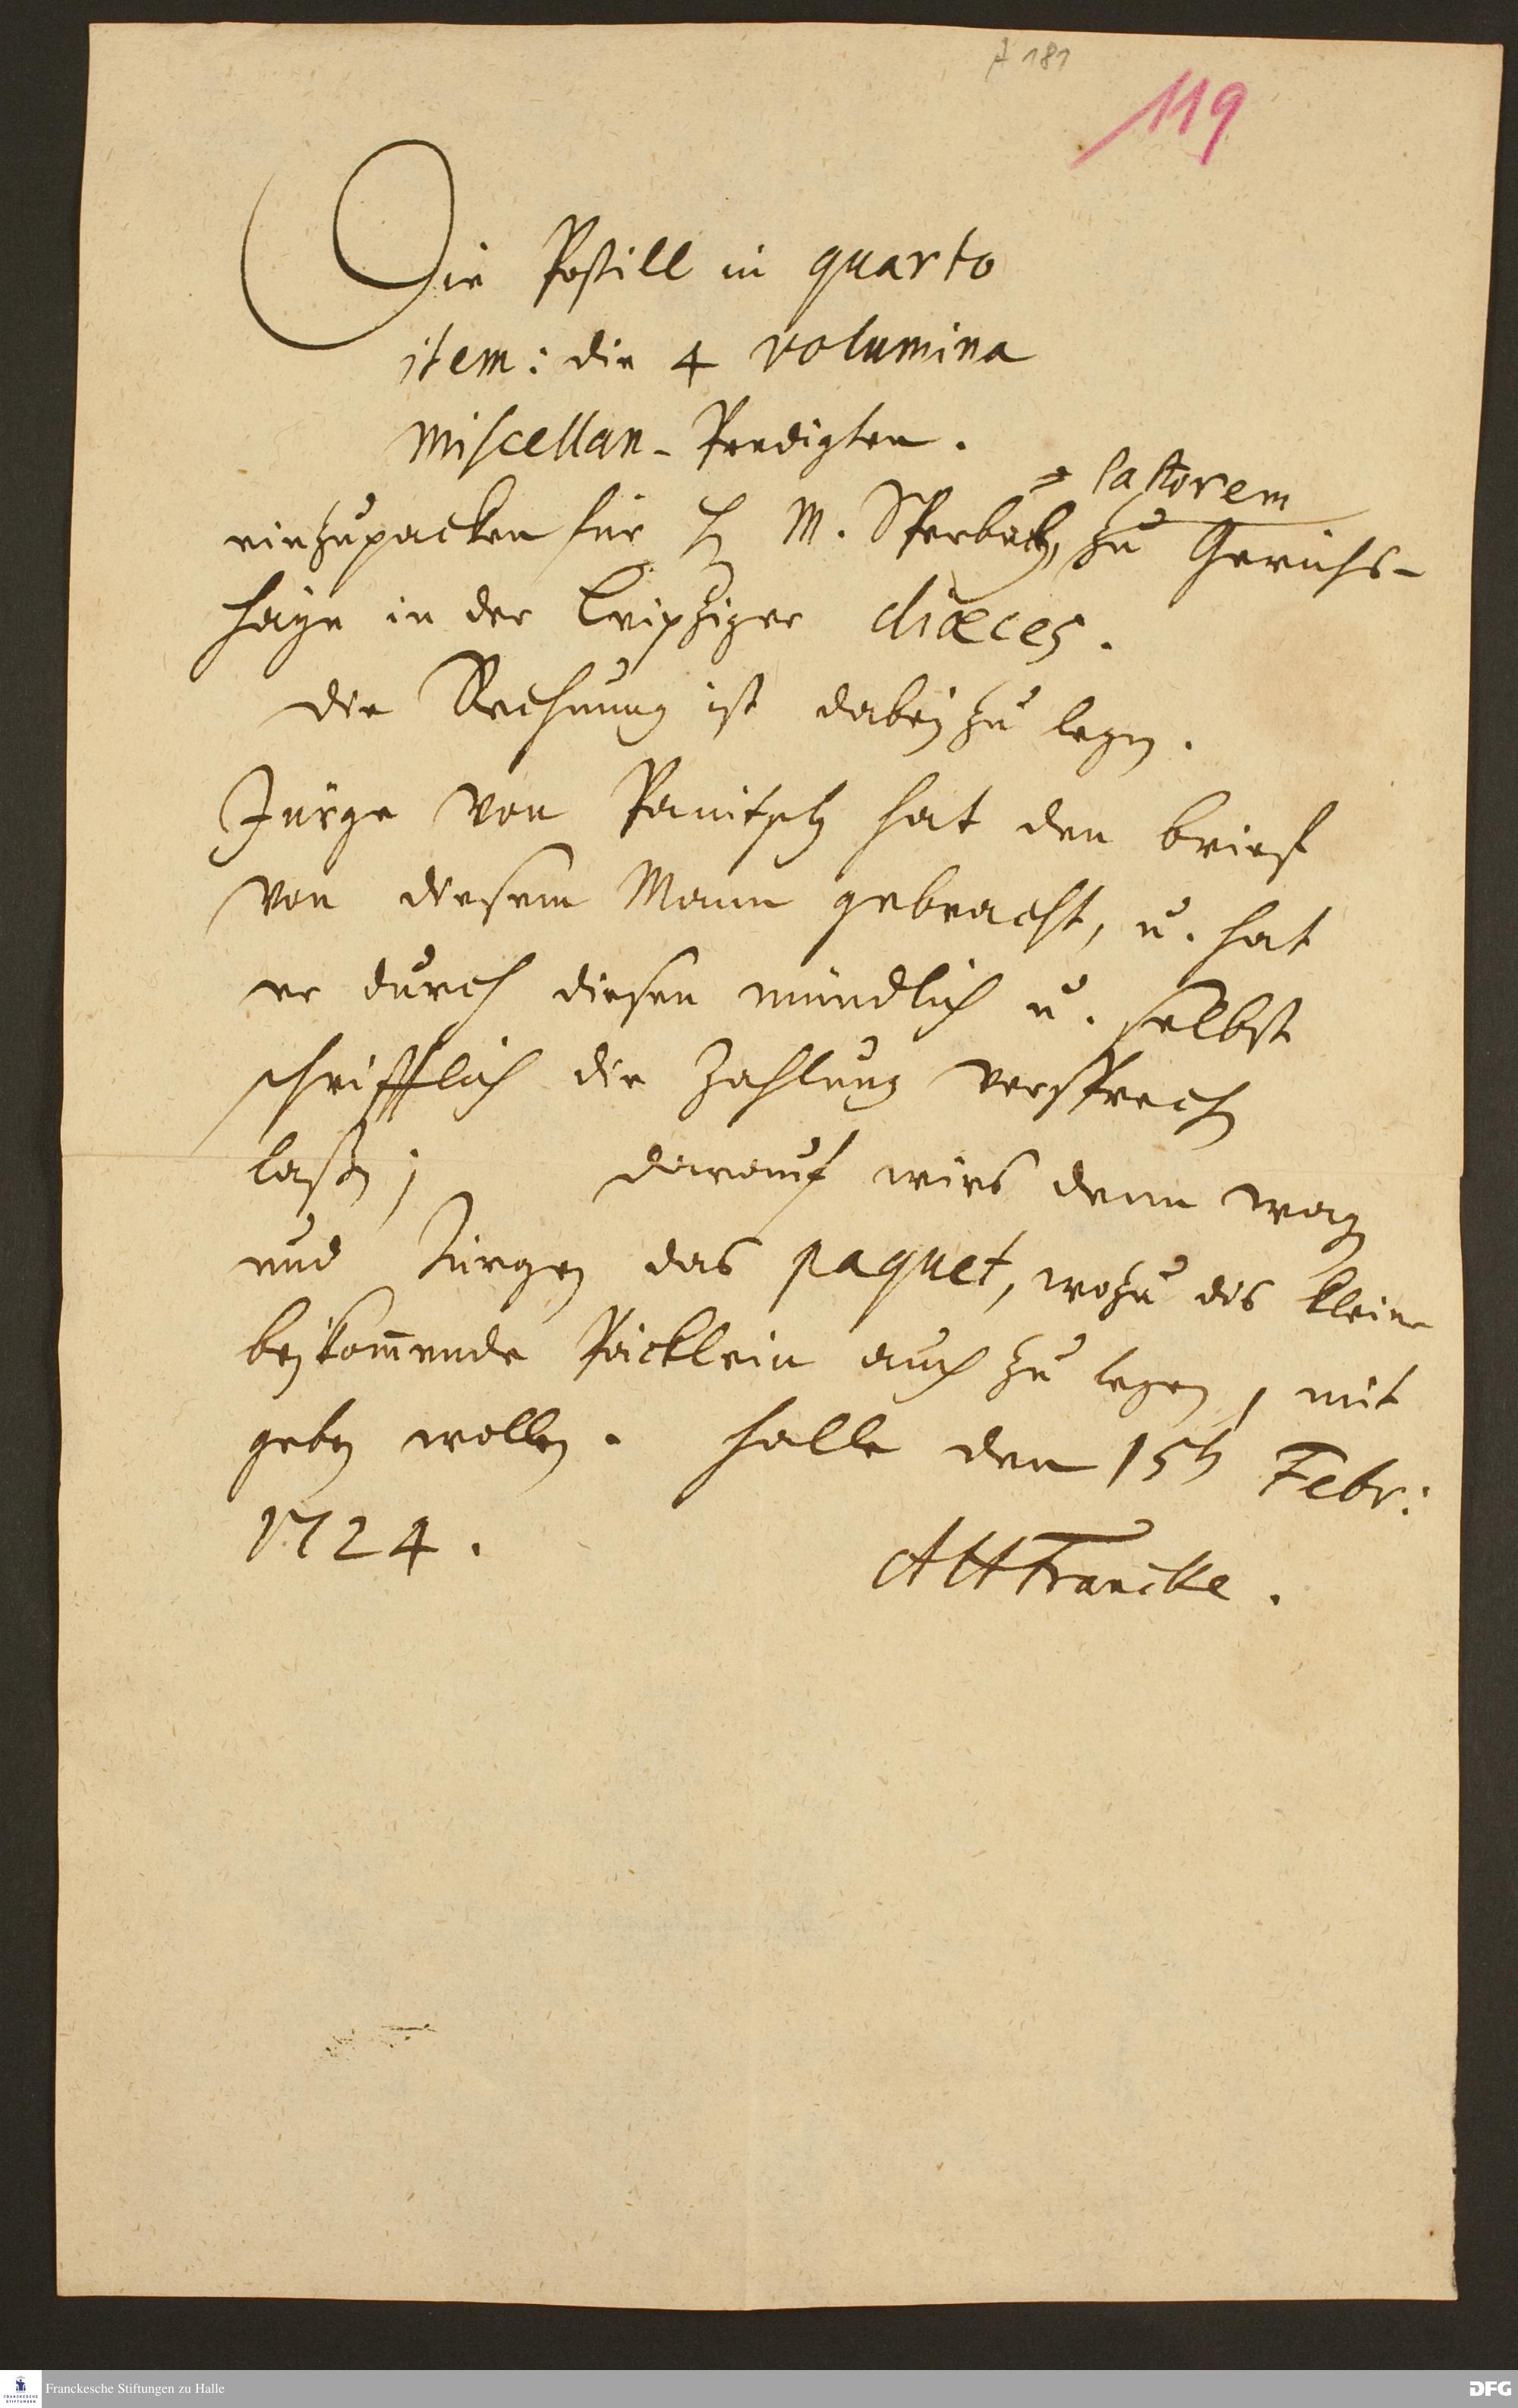 A 181
119
Die Postill in quarto
item: die 4 volumina
Miscellan-Predigten.
Pastorem
einzupacken für H M. Sperbach, zu Gerichs-
hayn in der Leipziger diœces.
Die Rechnung ist dabey zu legen.
Jürge von Panitzsch hat den brief
von diesem Mann gebracht, u. hat
er durch diesen mündlich u. selbst
schrifftlich die Zahlung versprechen
laßen; darauf wirs denn wagen
und Jürgen das paquet, wozu dis kleine
beykom̅ende Päcklein auch zu legen, mit
geben wollen. Halle den 15ten Febr:
1724.
AHFrancke.
Franckesche Stiftungen zu Halle
FRANCKESCHE STIFTUNGEN
DFG